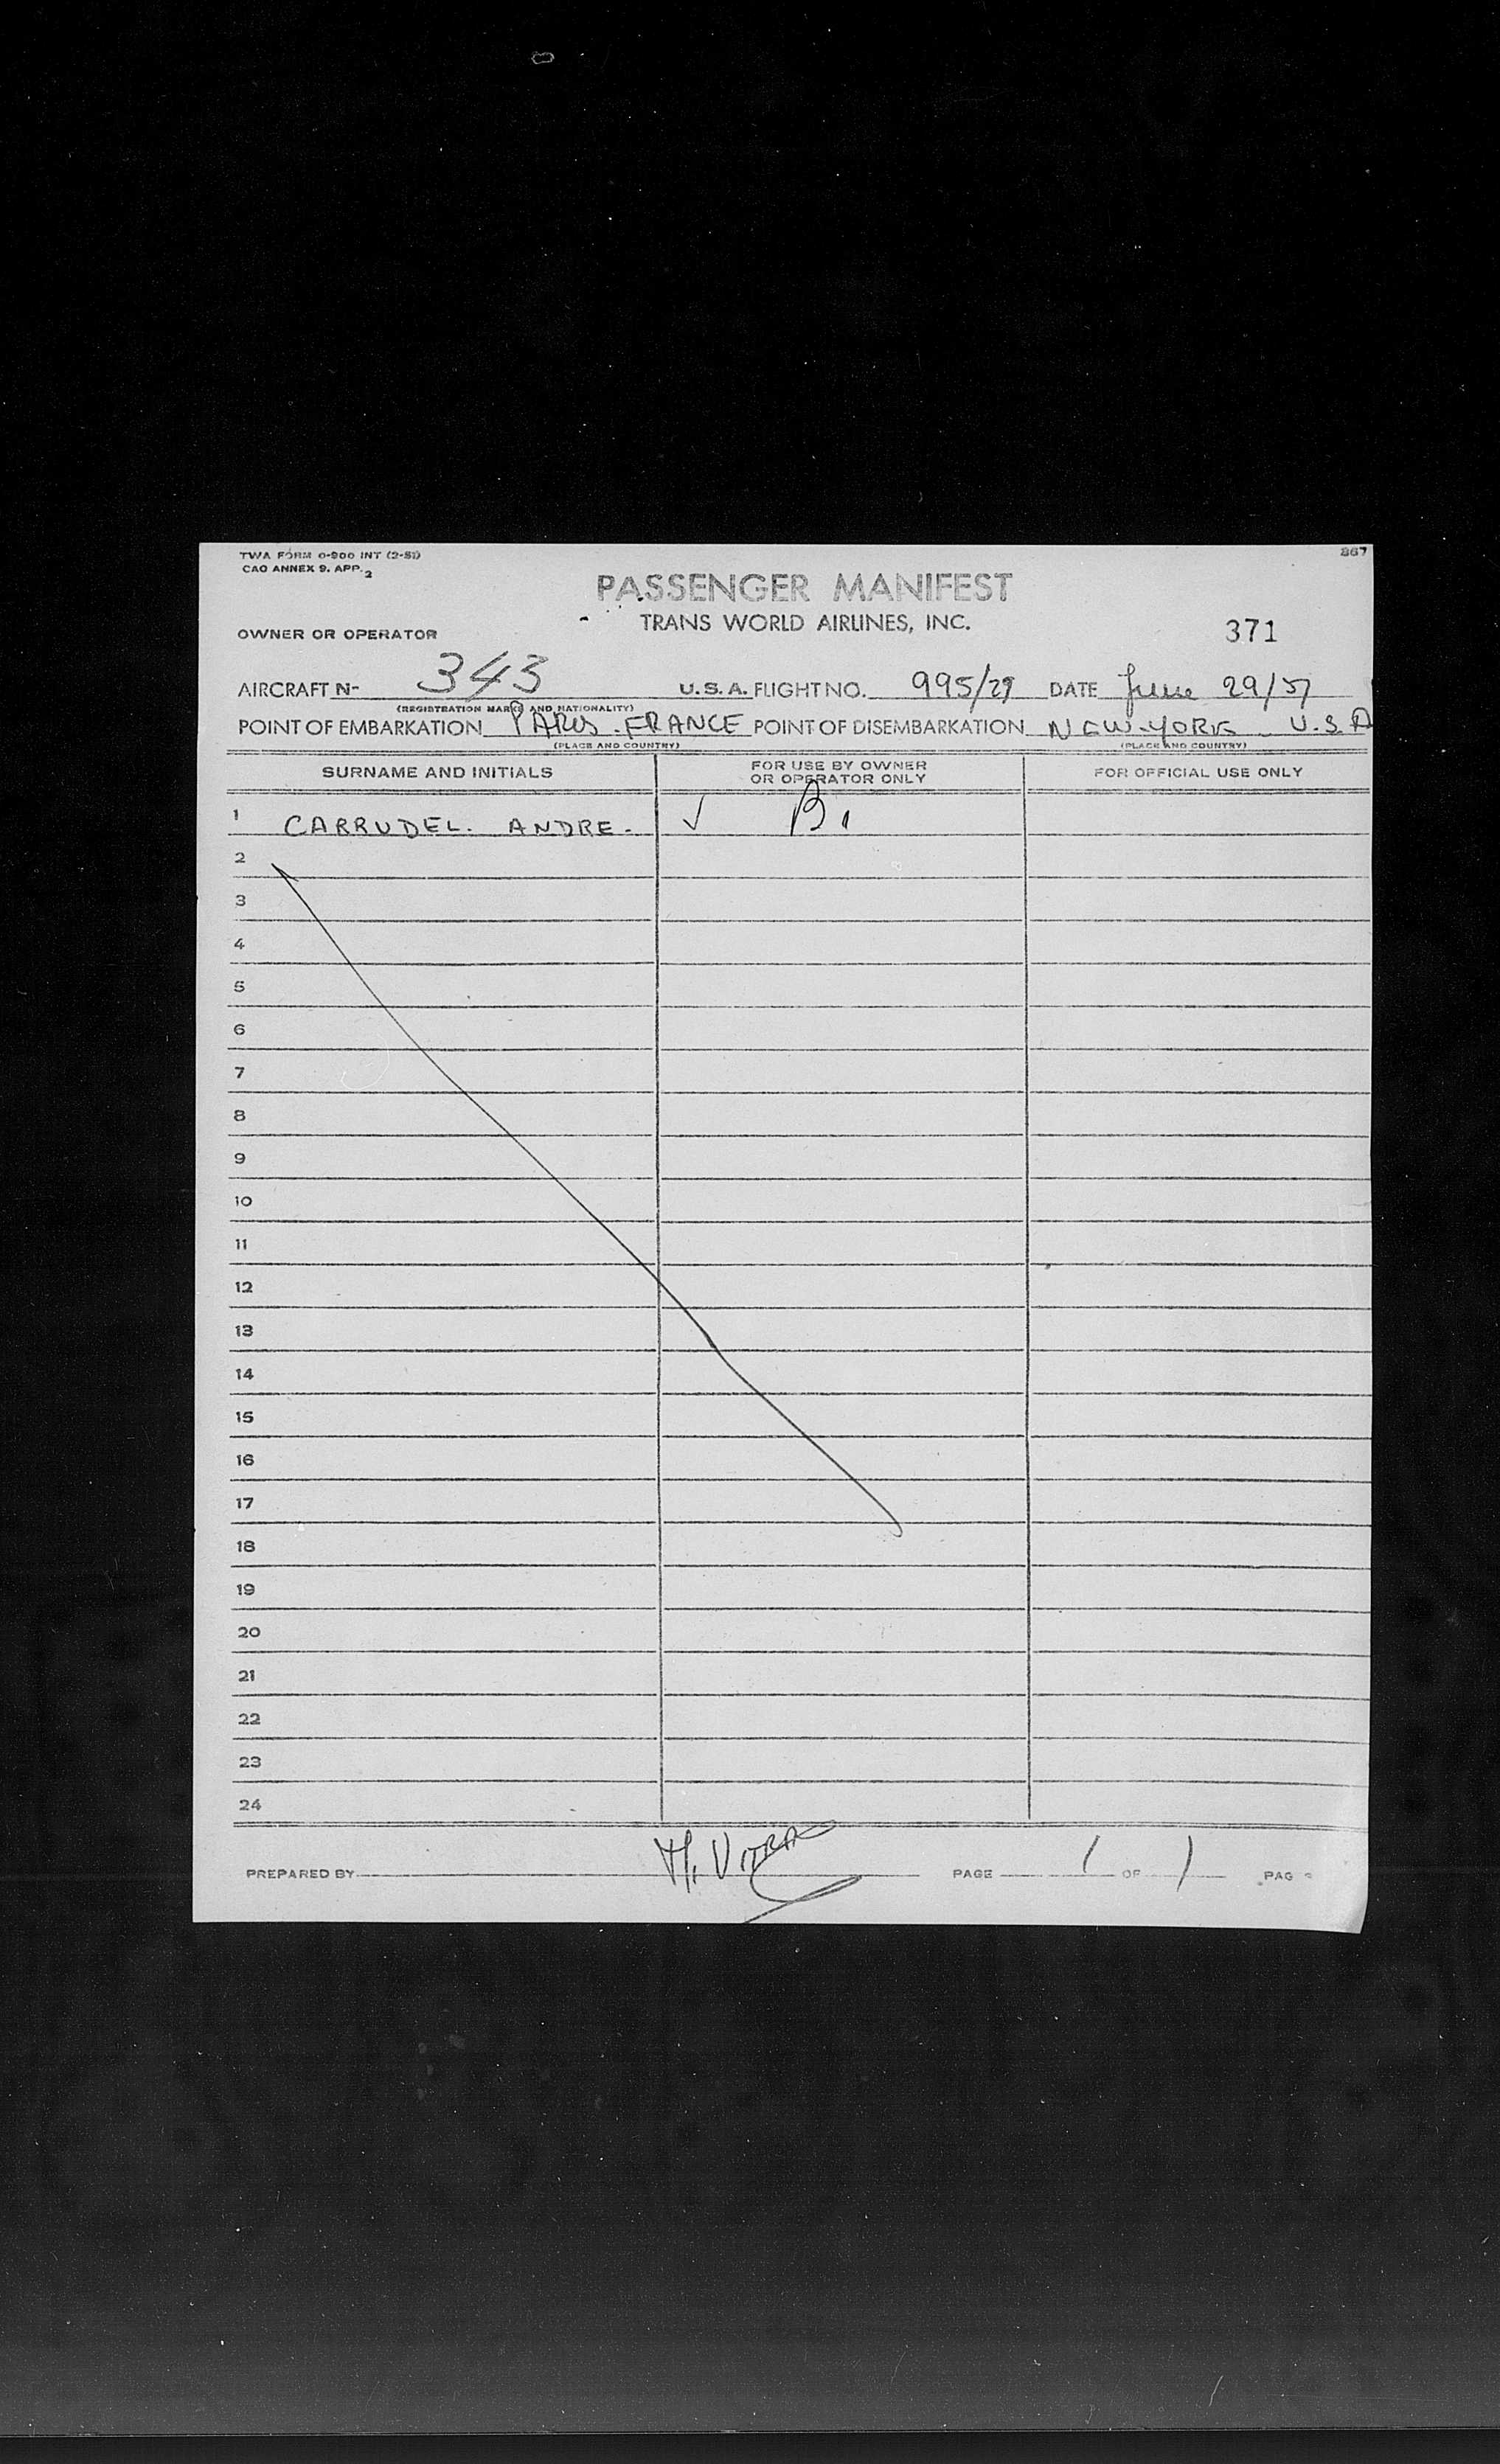 TWA FORM 0-900 INT (2-51) 867
CAO ANNEX 9. APP. 2
PASSENGER MANIFEST
TRANS WORLD AIRLINES, INC.
OWNER OR OPERATOR 371
AIRCRAFT N- 343 U.S.A. FLIGHT NO. 995/29 DATE June 29/57
(REGISTRATION MARKS AND NATIONALITY)
POINT OF EMBARKATION PARIS. FRANCE POINT OF DISEMBARKATION NEW-YORK U.S.A
(PLACE AND COUNTRY) (PLACE AND COUNTRY)
SURNAME AND INITIALS FOR USE BY OWNER OR OPERATOR ONLY FOR OFFICIAL USE ONLY
1 CARRUDEL. ANDRE. ✓ B1
2
3
4
5
6
7
8
9
10
11
12
13
14
15
16
17
18
19
20
21
22
23
24
PREPARED BY PAGE 1 OF 1 PAG